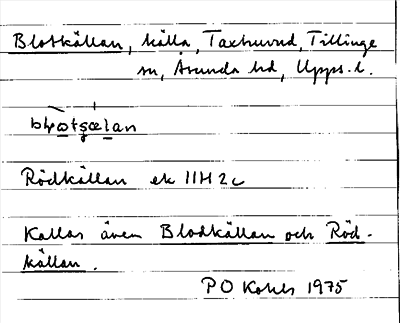 Blotkällan, källa, Taxhuvud, Tillinge
sn, Åsunda hd, Upps. l.
Rödkällan ek 11H2c
Kallas även Blodkällan och Röd-
källan.
P O 1975